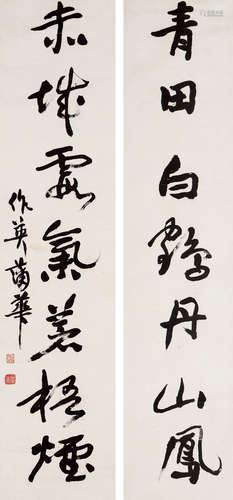 青田白鶴丹山鳳
赤城霞氣蒼梧煙
作英蒲華